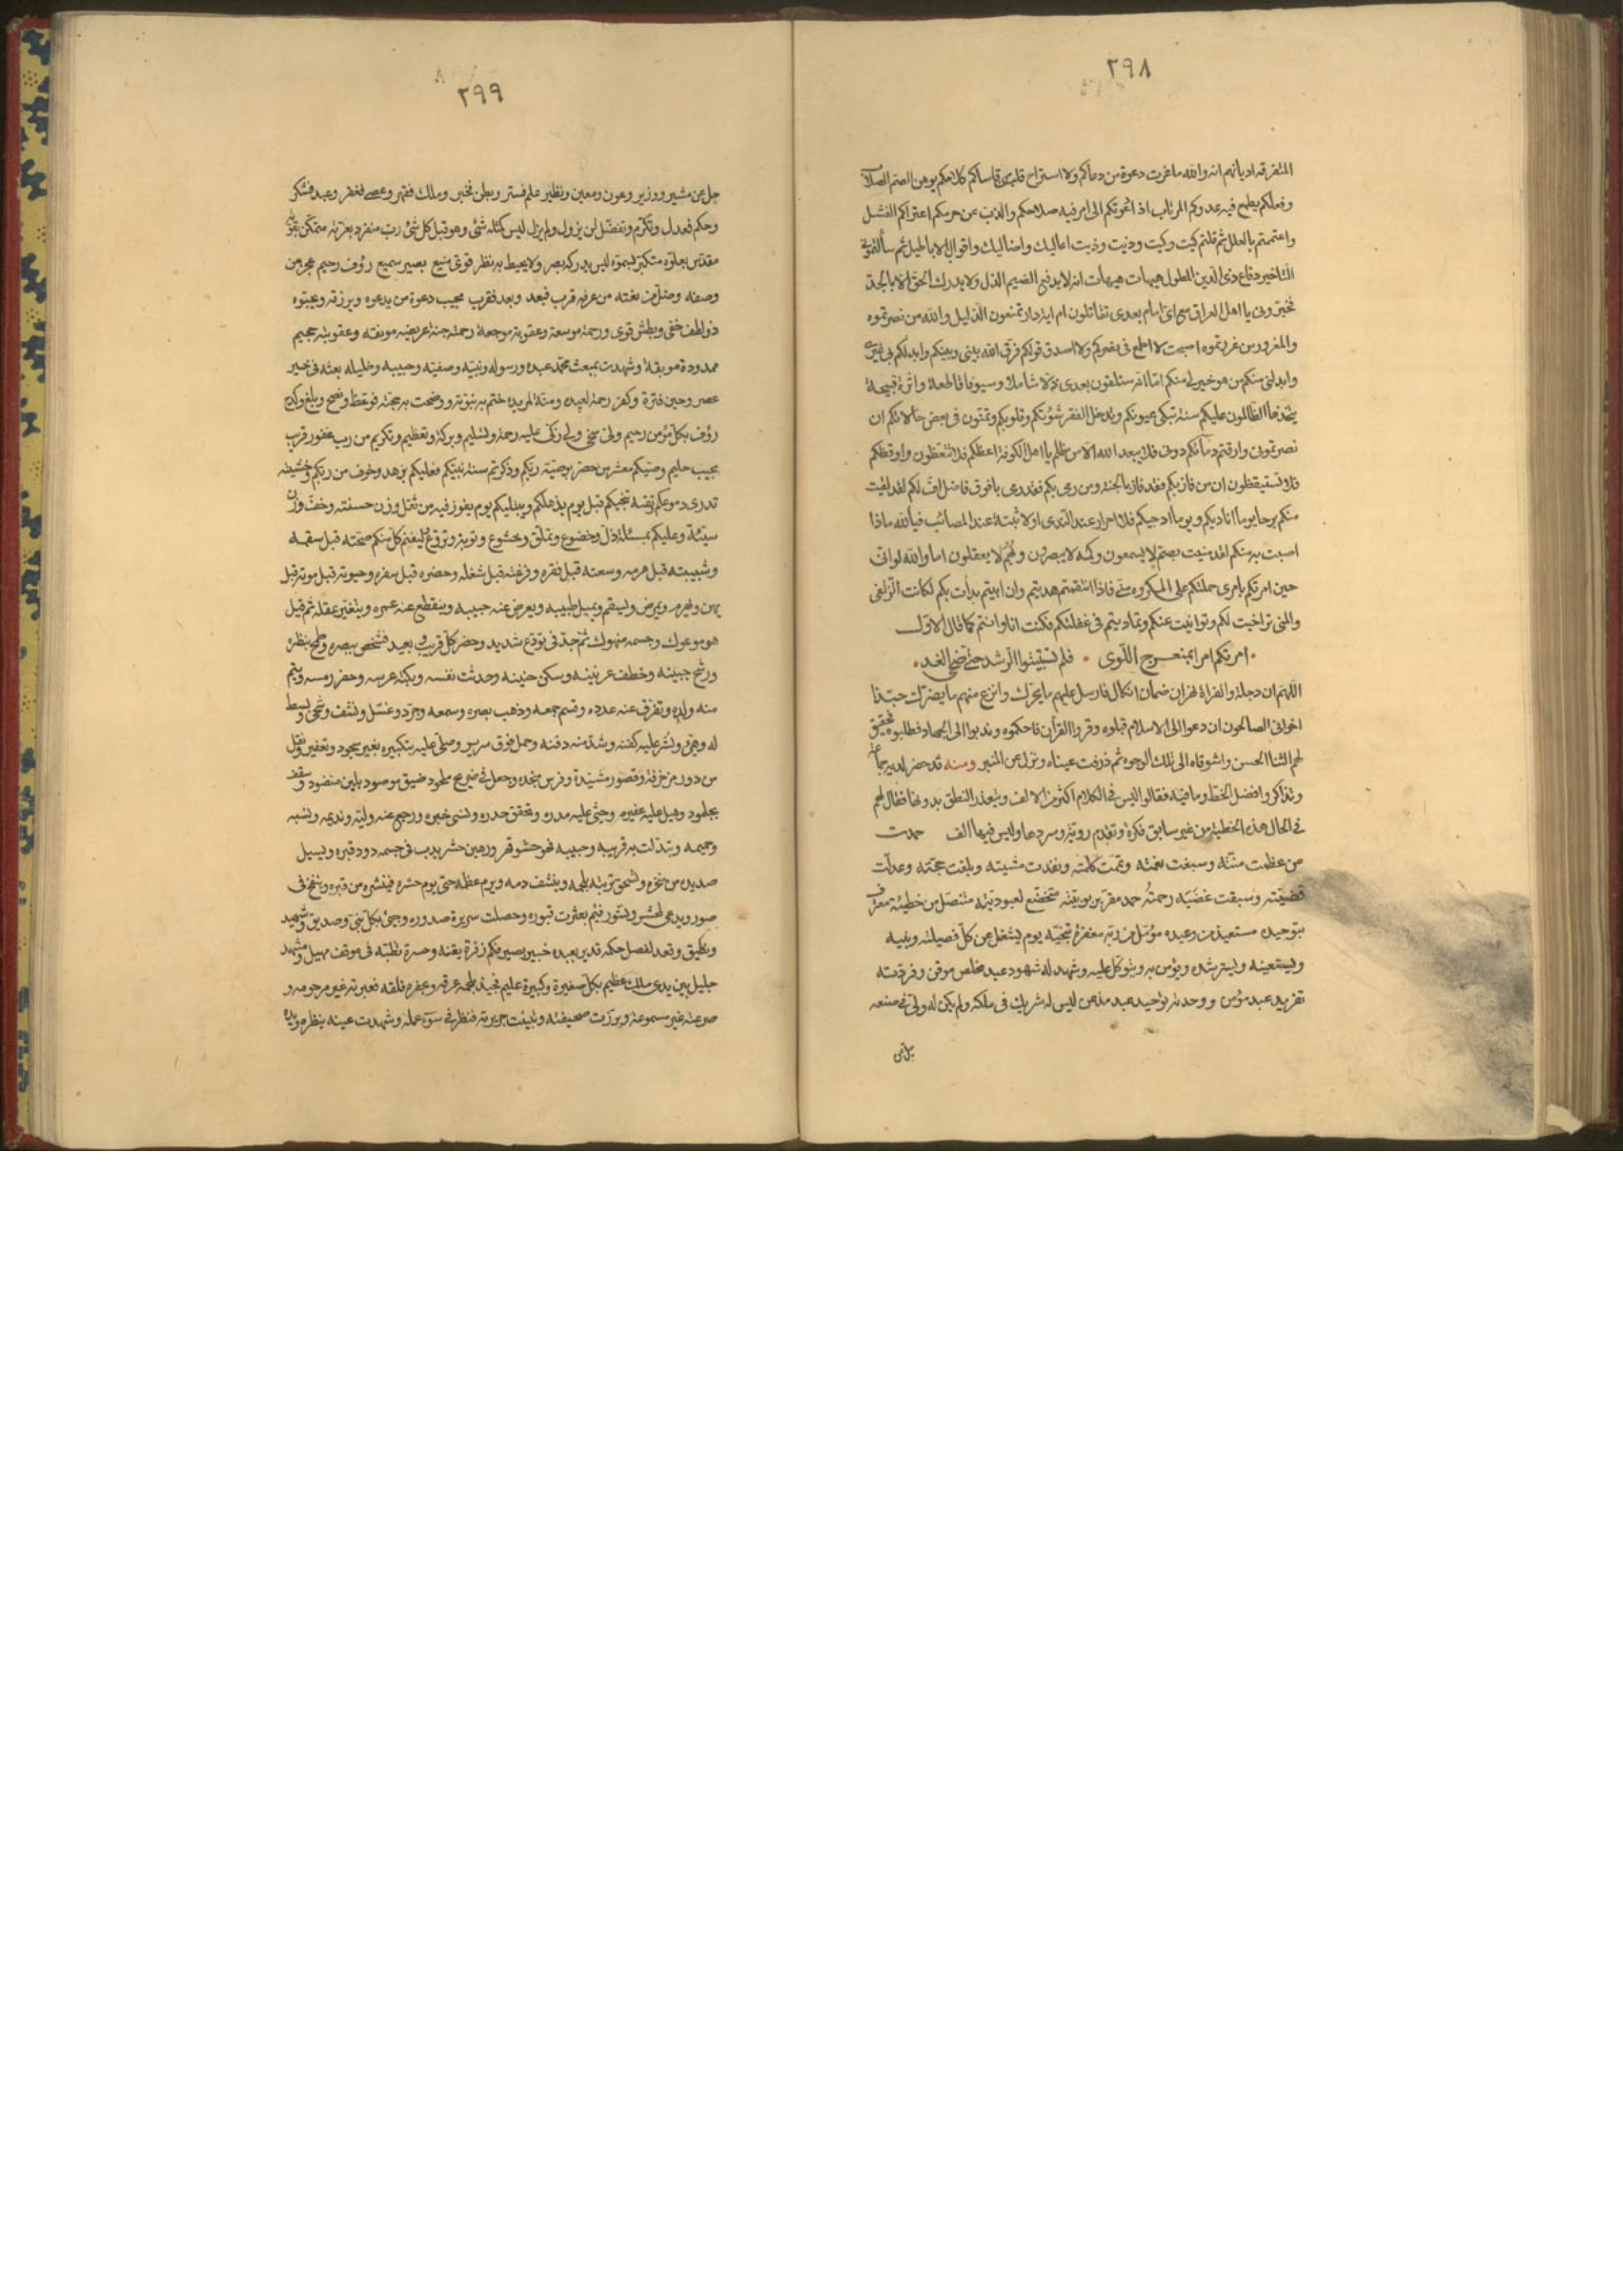 ٢٩٨
المتفرقة اديانهم انه والله ما عزت دعوة من دعاكم ولا استراح قلب من قاساكم كلامكم يوهن الصم الصلاب
وفعلكم يطمع فيه عدوكم المرتاب اذا دعوتكم الى امر فيه صلاحكم والذب عن حريمكم اعتراكم الفشل
واعتمتم بالعلل ثم قلتم كيت وكيت وذيت وذيت اعاليل واضاليل واقوال الاباطيل ثم سألتموني
التاخير دفاع ذى الدين المطول هيهات هيهات انه لا يدفع الضيم الذل ولا يدرك الحق الا بالجد
فخبروني يا اهل العراق مع اى امام بعدى تقاتلون ام اية دار تمنعون الذليل والله من نصرتموه
والمغرور من غررتموه اصبحت لا اطمع فى نصركم ولا اصدق قولكم فرق الله بينى وبينكم وابدلكم بى غيرى
وابدلنى منكم من هو خير لى منكم اما انه ستلقون بعدى ذلا شاملا وسيوفا قاطعة واثرة قبيحة
يتخذها الظالمون عليكم سنة تبكى عيونكم ويدخل الفقر بيوتكم وقلوبكم وتمنون فى بعض حالاتكم ان
نصرتمونى وارقتم دمائكم دونى فلا يبعد الله الا من ظلم يا اهل الكوفة اعظكم فلا تتعظون واوقظكم
فلا تستيقظون ان من فاز بكم فقد فاز بالخيبة ومن رمى بكم فقد رمى بافوق ناصل اف لكم لقد لقيت
منكم برحا يوما اناديكم ويوما اناجيكم فلا احرار عند الندى ولا ثقة عند المصائب فيا لله ماذا
اصبت به منكم لقد منيت بصم لا يسمعون وكمه لا يبصرون وبهم لا يعقلون اما والله لو انى
حين امرتكم بامرى حملتكم على المكروه منى فاذا استقمتم هديتم وان ابيتم بدأت بكم لكانت الزلفى
ولكنى تراخيت لكم وتوانيت عنكم وتماديتم فى غفلتكم فكنت انا وانتم كما قال الاول
امرتكم امرا بمنعرج اللوى فلم تستبينوا الرشد حتى ضحى الغد
اللهم ان دجلة والفراة نهران ضمان ابكمان فارسل عليهم ماء بحرك وانزع منهم ما نصرك حبذا
اخوانى الصالحون ان دعوا الى الاسلام قبلوه وقرؤا القرآن فاحكموه وندبوا الى الجهاد فطلبوه تحقيق
لهم الثناء الحسن واشوقاه الى تلك الوجوه ثم ذرفت عيناه ونزل عن المنبر ومنه قد حضر لديه جماعة
وتذاكروا فضل الخط وما فيه فقالوا ليس فى الكلام اكثر من الالف ويتعذر النطق بدونها فقال لهم
فى الحال هذه الخطبة من غير سابق فكرة وتقدم روية وسردها وليس فيها الف حمدت
من عظمت منته وسبغت نعمته وتمت كلمته ونفذت مشيته وبلغت حجته وعدلت
قضيته وسبقت غضبه رحمته حمد مقر بربوبيته متخضع لعبوديته متنصل من خطيئته معترف
بتوحيده مستعيذ من وعيده مؤمل من ربه مغفرة تنجيه يوم يشغل عن كل فصيلته وبنيه
ويستعينه ويسترشده ويؤمن به ويتوكل عليه وشهد له شهود عبد مخلص موقن وفردته
تفريد عبد مؤمن ووحدته توحيد عبد مذعن ليس له شريك فى ملكه ولم يكن له ولى فى صنعه
جل عن
٢٩٩
جل عن مشير ووزير وعون ومعين ونظير علم فستر وبطن فخبر وملك فقهر وعصى فغفر وعبد فشكر
وحكم فعدل وتكرم وتفضل لن يزول ولم يزل ليس كمثله شئ وهو قبل كل شئ رب منفرد بعزته متمكن بقوته
مقدس بعلوه متكبر بسموه ليس يدركه بصر ولا يحيط به نظر قوى منيع بصير سميع رؤف رحيم عجز من
وصفه وضل من نعته من عرفه قرب فبعد وبعد فقرب مجيب دعوة من يدعوه ويرزقه ويحبوه
ذو لطف خفى وبطش قوى ورحمة موسعة وعقوبة موجعة رحمته جنة عريضة مونقة وعقوبته جحيم
ممدودة موبقة وشهدت ببعث محمد عبده ورسوله ونبيه وصفيه وحبيبه وخليله بعثه فى خير
عصر وحين فترة وكفر رحمة لعبيده ومنة لمزيده ختم به نبوته ووضحت به حجته فوعظ ونصح وبلغ وكدح
رؤف بكل مؤمن رحيم ولى سخى ولى زكى عليه رحمة وتسليم وبركة وتعظيم وتكريم من رب غفور قريب
مجيب حليم وصيتكم معشر من حضر بوصية ربكم وذكرتكم سنة نبيكم فعليكم برهبة وخوف من ربكم وخشية
تدرى دموعكم وتقية تنجيكم قبل يوم يذهلكم ويبليكم يوم يفوز فيه من ثقل وزن حسنته وخف وزن
سيئته وعليكم بمسئلة ذل وخضوع وتملق وخشوع وتوبة ونزوع ليغنم كل منكم صحته قبل سقمه
وشبيبته قبل هرمه وسعته قبل فقره وفرغته قبل شغله وحضره قبل سفره وحيوته قبل موته قبل
يهن ويهرم ويمرض ويسقم ويميل طبيبه ويعرض عنه حبيبه وينقطع عنه عمره ويتغير عقله ثم قيل
هو موعوك وجسمه منهوك ثم جد فى نزع شديد وحضر كل قريب وبعيد فشخص ببصره وطمح بنظره
ورشح جبينه وخطف عرنينه وسكن حنينه وحدثت نفسه وبكته عرسه وحضر رمسه ويتم
منه ولده وتفرق عنه عدده وقسم جمعه وذهب بصره وسمعه وجرد وغسل ونشف وسجى وبسط
له وهيئ ونشر عليه كفنه وشد منه ذقنه وحمل فوق سرير وصلى عليه بتكبيره بغير سجود وتعفير ونقل
من دور مزخرفة وقصور مشيدة وفرش منجده وجعل فى ضريح ملحود ضيق موصود بلبن منضود وسقف
بجلمود وهيل عليه عفره وحثى عليه مدره وتحقق حذره ونسى خبره ورجع عنه وليه ونديمه ونسيبه
وحميمه وتبذلت به قريبه وحبيبه فهو حشو قبر ورهين حشر يدب فى جسمه دود قبره ويسيل
صديده من منخره وتسحق تربته لحمه وينشف دمه ويرم عظمه حتى يوم حشره فينشره من قبره وينفخ فى
صور ويدعى لحشر ونشور فثم بعثرت قبوره وحصلت سريرة صدوره وجيئ بكل نبى وصديق وشهيد
ونطيق وقعد لفصل حكمه قدير بعبده خبير بصير فكم زفرة تغنه وحسرة نطبته فى موقف مهيل ومشهد
جليل بين يدى ملك عظيم بكل صغيرة وكبيرة عليم فحينئذ يلجمه عرقه وحفره قلقه فعبرته غير مرحومه و
صرعته غير مسموعة وبرزت صحيفته وتبينت جريرته فنظر فى سوء عمله وشهدت عينه بنظره ويده